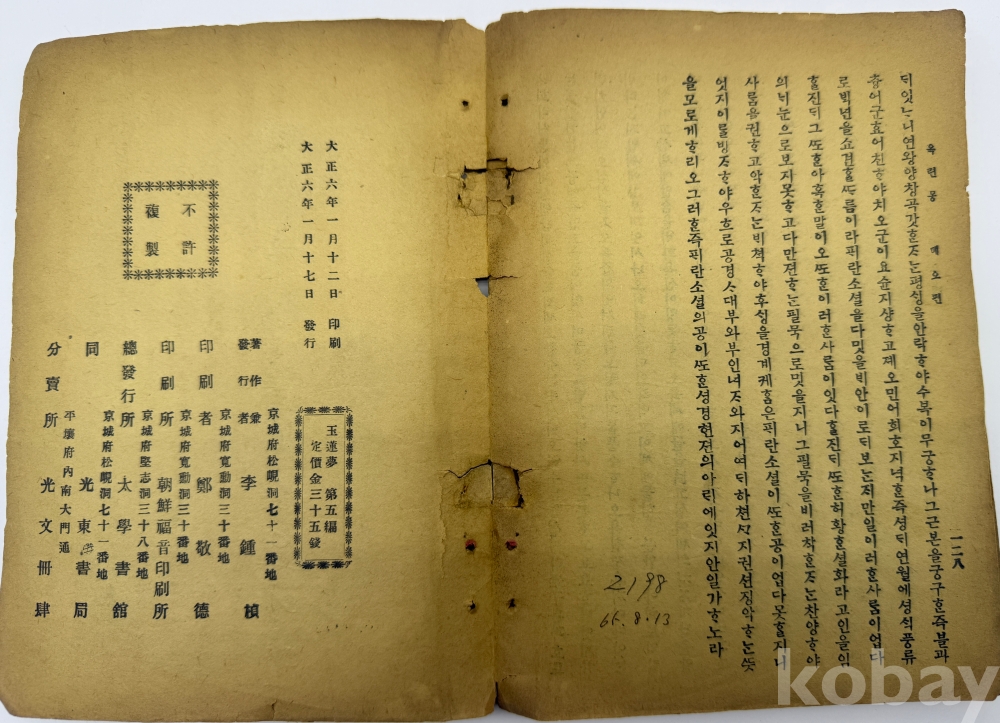 옥련몽 뎨오편
一二八
ᄃᆡ잇ᄂᆞ니연왕양창곡갓ᄒᆞᆫᄌᆞᄂᆞᆫ평ᄉᆡᆼ을안락ᄒᆞ야수복이무궁ᄒᆞ나그근본을궁구ᄒᆞᆫ즉불과
츙어군효어친ᄒᆞ야치오군이요슌지샹ᄒᆞ고졔오민어희호지녁ᄒᆞᆫ즉셩ᄃᆡ연월에셩ᄉᆡᆨ풍류
로ᄇᆡᆨ년을쇼견ᄒᆞᆯᄯᆞ름이라ᄑᆡ란소셜을다밋을비안이로ᄃᆡ보ᄂᆞᆫᄌᆡ만일이러ᄒᆞᆫ사ᄅᆞᆷ이업다
ᄒᆞᆯ진ᄃᆡ그ᄯᅩᄒᆞᆫ아혹ᄒᆞᆫ말이오ᄯᅩᄒᆞᆫ이러ᄒᆞᆫ사ᄅᆞᆷ이잇다ᄒᆞᆯ진ᄃᆡᄯᅩᄒᆞᆫ허황ᄒᆞᆫ셜화라고인을임
의ᄂᆡ눈으로보지못ᄒᆞ고다만젼ᄒᆞᄂᆞᆫ필묵으로밋을지니그필묵을비러착ᄒᆞᆫᄌᆞᄂᆞᆫ찬양ᄒᆞ야
사ᄅᆞᆷ을권ᄒᆞ고악ᄒᆞᆫᄌᆞᄂᆞᆫ비쳑ᄒᆞ야후ᄉᆡᆼ을경계케홈은ᄑᆡ란소셜이ᄯᅩᄒᆞᆫ공이업다못ᄒᆞᆯ지니
엇지이를방ᄌᆞᄒᆞ야우흐로공경ᄉᆞ대부와부인녀ᄌᆞ와지어여ᄃᆡ하쳔ᄭᆞ지권션징악ᄒᆞᄂᆞᆫᄯᅳᆺ
을모로게ᄒᆞ리오그러ᄒᆞᆫ즉ᄑᆡ란소셜의공이ᄯᅩᄒᆞᆫ셩경현젼의아ᄅᆡ에잇지안일가ᄒᆞ노라
2198
66.8.13
大正六年一月十二日 印刷
大正六年一月十七日 發行
不許
複製
玉蓮夢 第五編
定價金三十五錢
京城府松峴洞七十一番地
著作兼
發行者 李鍾楨
京城府寬勳洞三十番地
印刷者 鄭敬德
京城府寬勳洞三十番地
印刷所 朝鮮福音印刷所
京城府堅志洞三十八番地
總發行所 太學書舘
京城府松峴洞七十一番地
同 光東書局
平壤府內南大門通
分賣所 光文冊肆
kobay